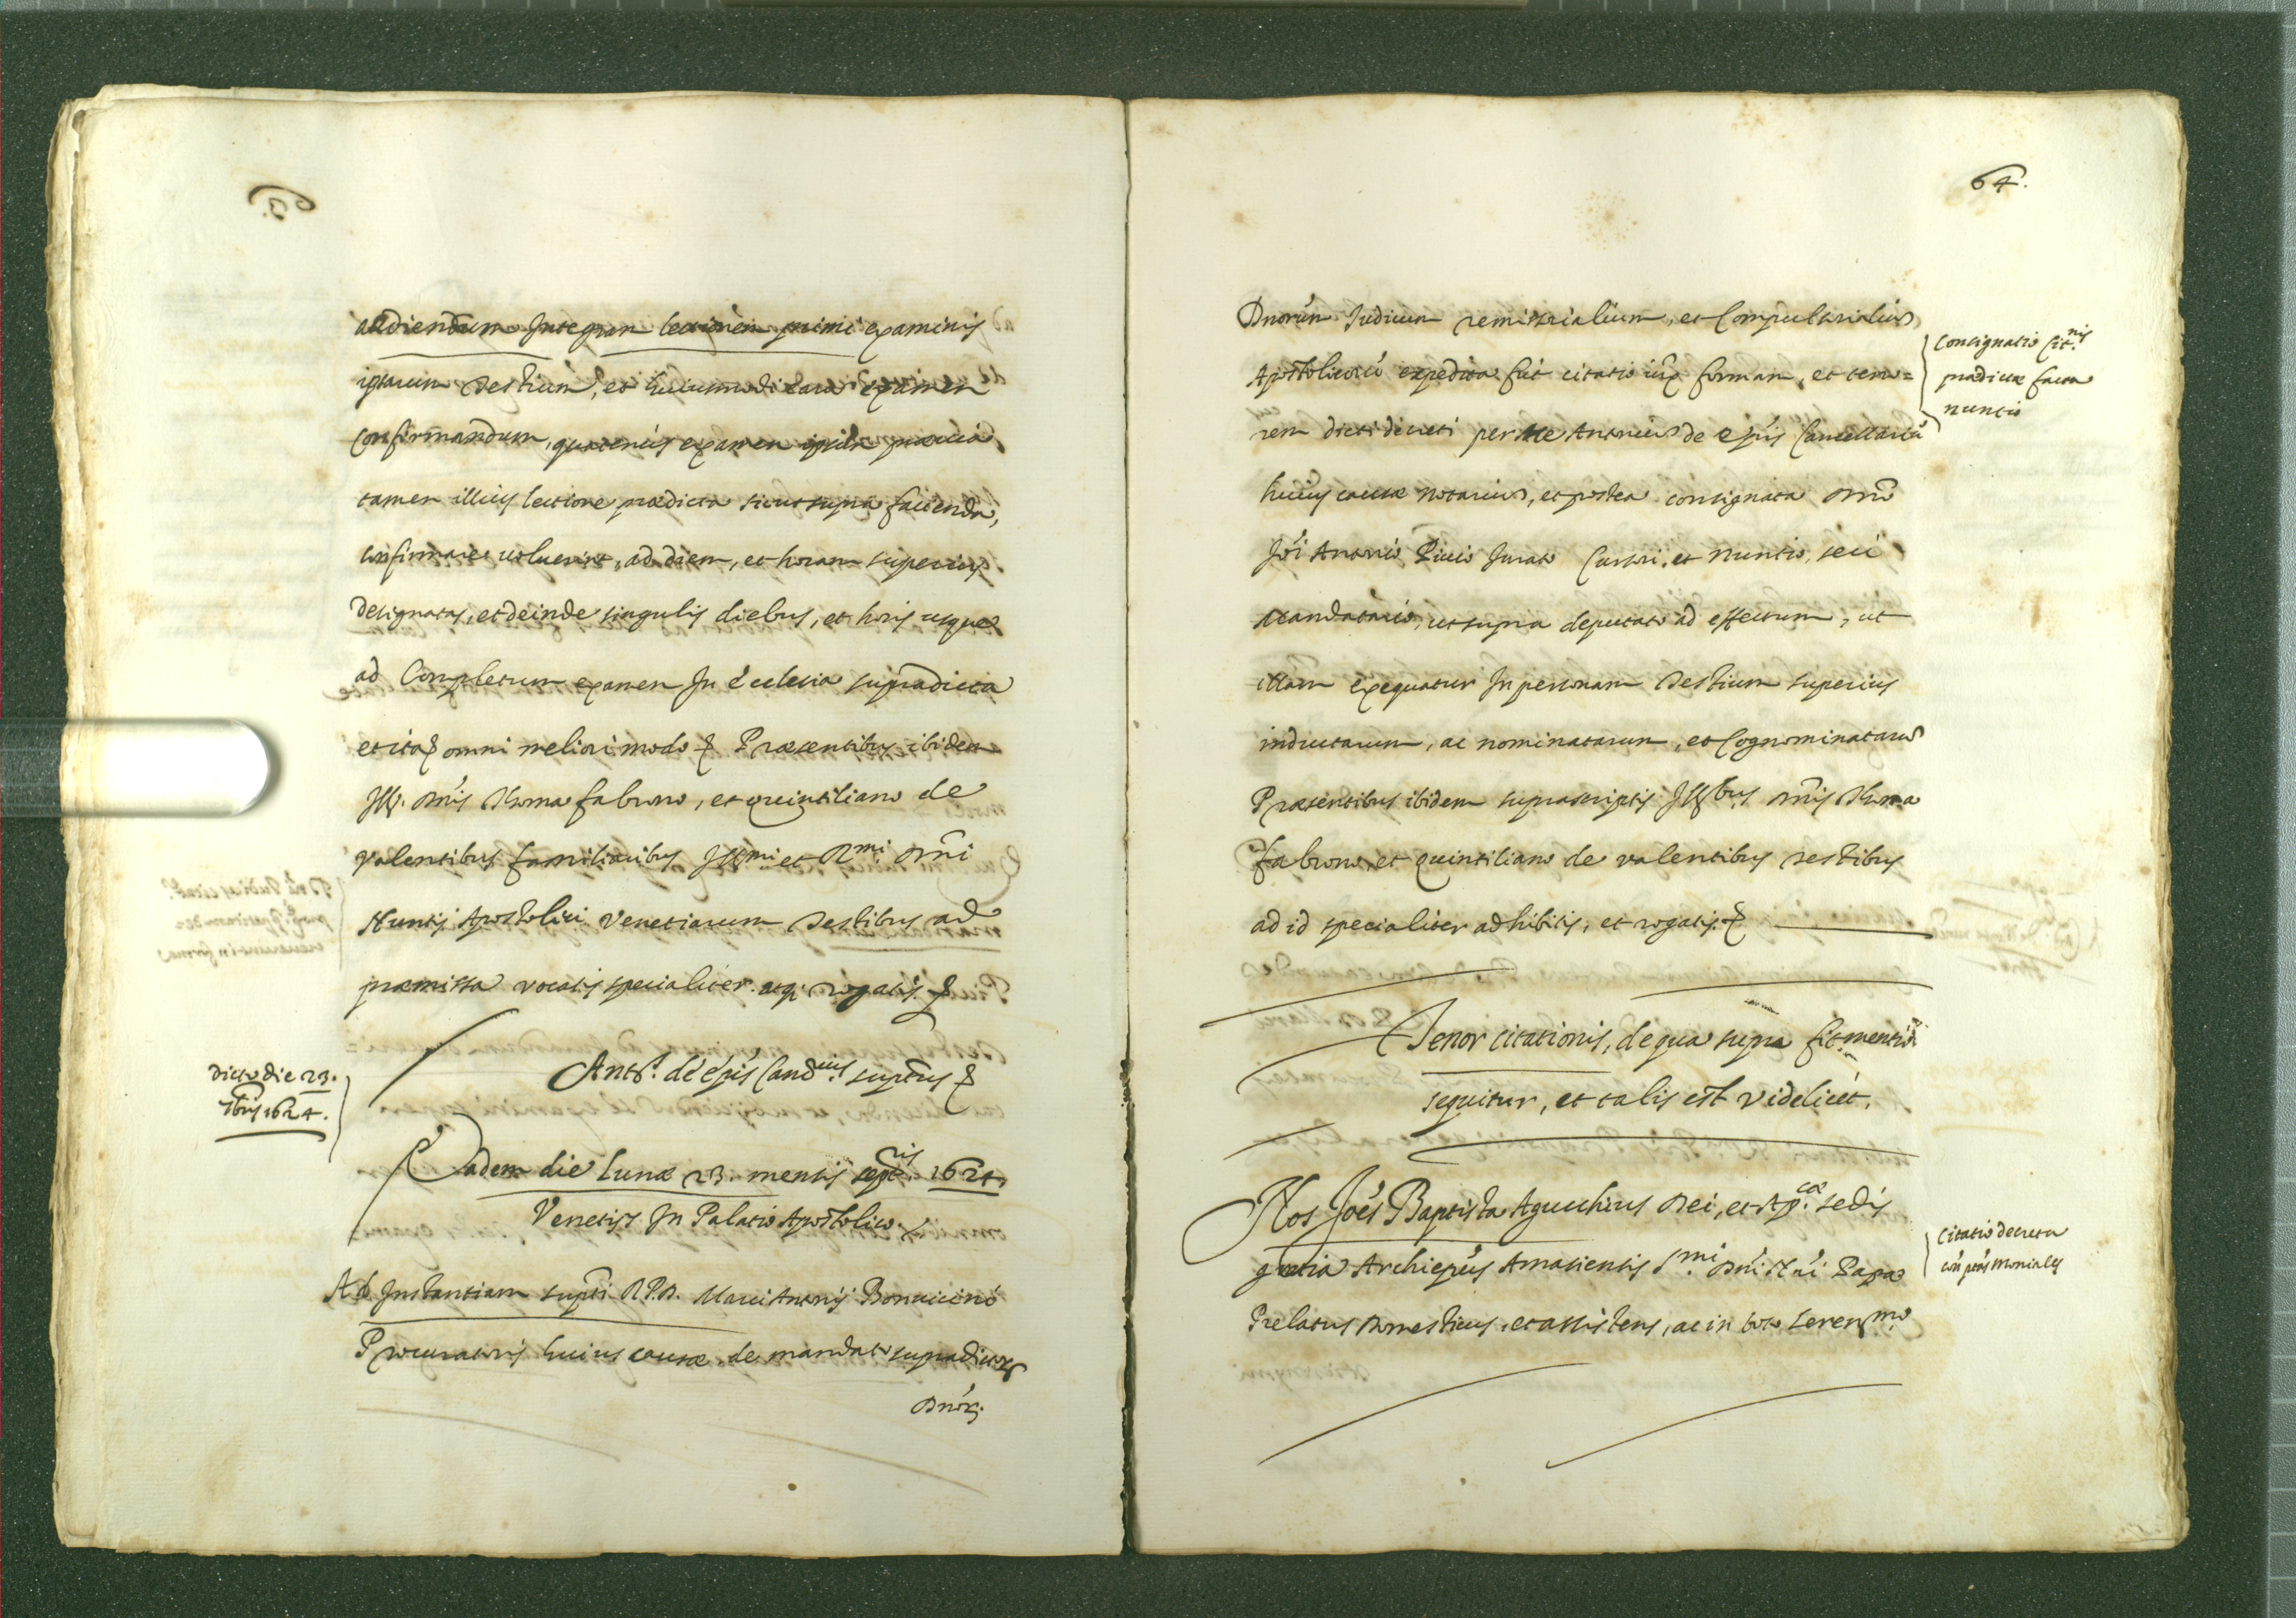 audiendum Integram lectionem primi examinis
ipsarum Testium, et huiusmodi earum examen
confirmandum, quatenus examen ipsum praevia
tamen illius lectione praedicta sicut supra facienda,
confirmare voluerint, ad diem, et horam superius
designatas, et deinde singulis diebus, et horis usque
ad Completum examen In Ecclesia supradicta
et ita omni meliori modo Praesentibus ibidem
Ill. Dnis Thoma fabrono, et quintiliano de
valentibus familiaribus Illmi et Rmi Dni
Nuntij Apostolici Venetiarum Testibus ad
praemissa vocatis specialiter atq. rogatis
Ants. de epis Cand suptus
Dicto die 23.
7bris 1624.
Eadem die Lunae 23. mensis septris 1624.
Venetijs In Palatio Apostolico
Ad Instantiam supti R.P.D. Marci Antonij Bonuicini
Procuratoris huius causae, de mandato supradictor
Dnor.
64.
Dnorum Iudicum remissorialium, et Compulsorialium
Apostolicoru expedita fuit citatio iux formam, et teno=
rem dicti decreti per me Antonium de epis Cancellariu
huius causae notarium, et postea consignata Dno
Joi Antonio Piccio Jurato Cursori, et Nuntio, seu
Mandatario, ut supra deputato ad effectum, ut
illam exequatur In personam Testium superius
inductarum, ac nominatarum, et Cognominatarum
Praesentibus ibidem suprascriptis Illbus Dnis Thoma
fabrono, et quintiliano de valentibus testibus
ad id specialiter adhibitis, et rogatis
Consignatio Citnis
praedictae facta
nuncio
Tenor citationis, de qua supra fit mentio
sequitur, et talis est videlicet.
Nos Joes Baptista Agucchius Dei, et Apcae sedis
gratia Archiepus Amasiensis Smi Dni Nri Papae
Prelatus Domesticus, et assistens, ac in toto Serenmo
Citatio decreta
con pras moniales